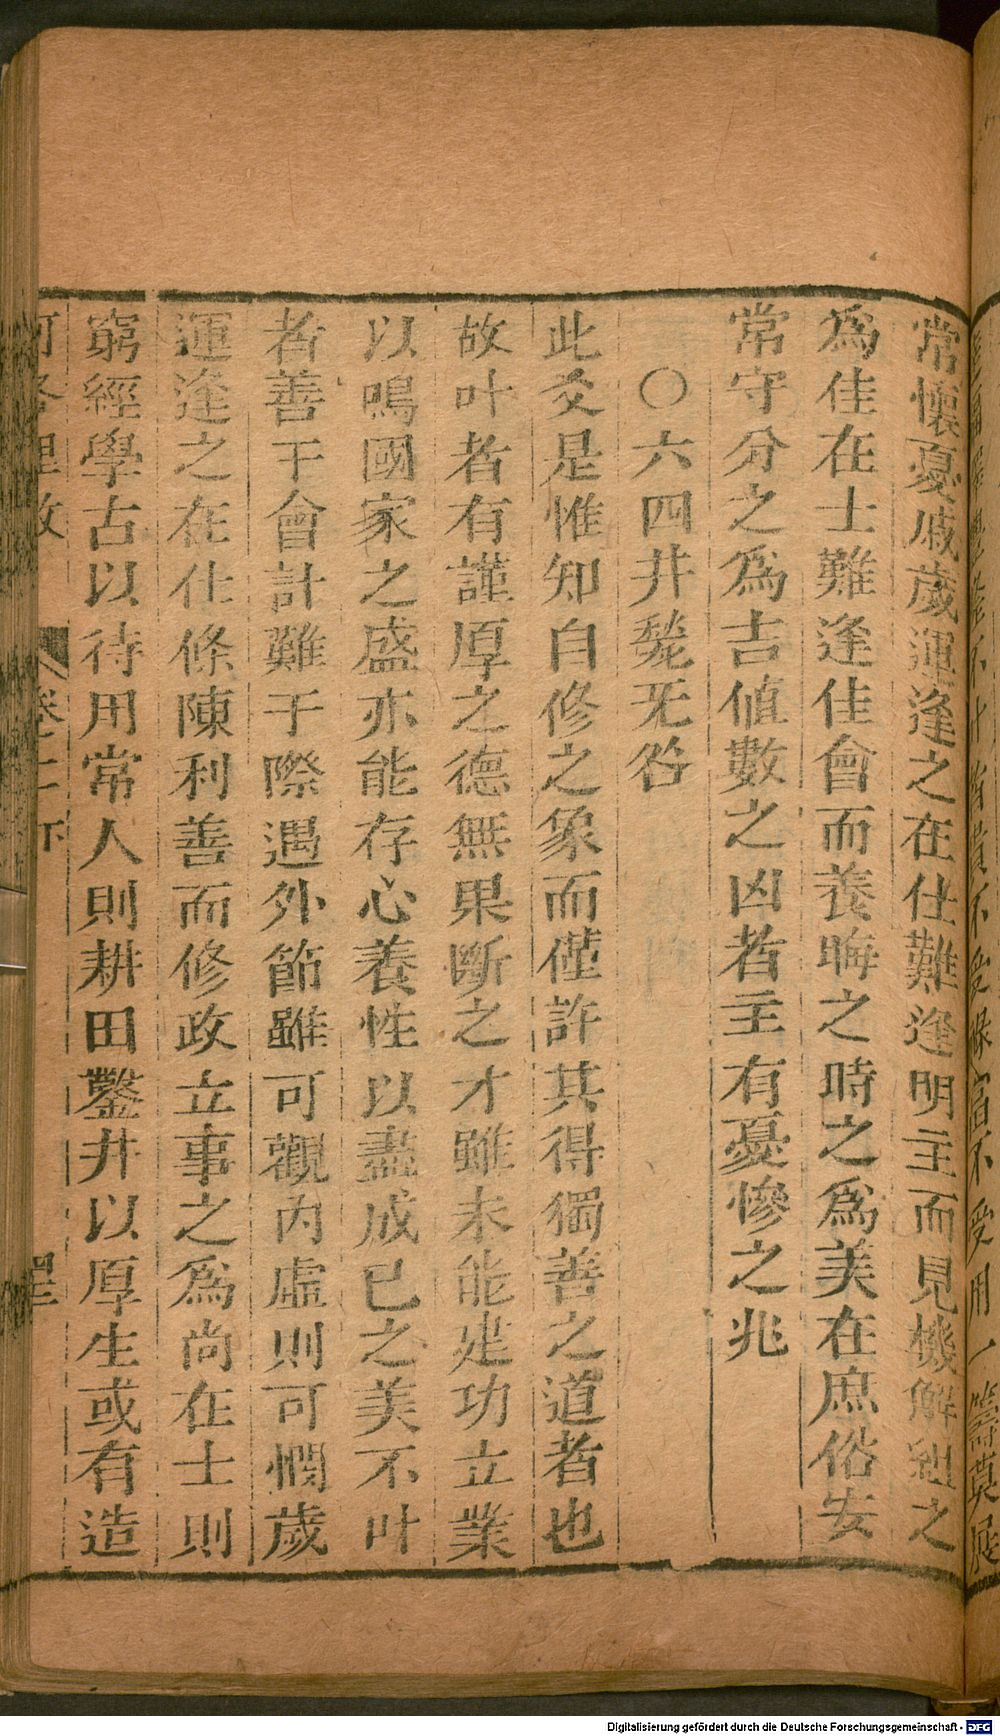 常懷憂戚歲運逢之在仕難逢明主而見機解組之
為佳在士難逢佳會而養晦之時之為美在庶俗安
常守分之為吉値數之凶者主有憂慘之兆
〇六四井甃无咎
此爻是惟知自修之象而僅許其得獨善之道者也
故叶者有謹厚之德無果斷之才雖未能建功立業
以鳴國家之盛亦能存心養性以盡成已之美不叶
者善于會計難于際遇外節雖可觀內虛則可憫歲
運逢之在仕條陳利善而修政立事之為尚在士則
窮經學古以待用常人則耕田鑿井以厚生或有造
Digitalisierung gefördert durch die Deutsche Forschungsgemeinschaft - DFG